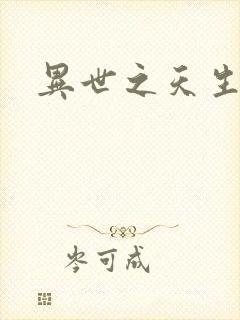 異世之天生
岑可成